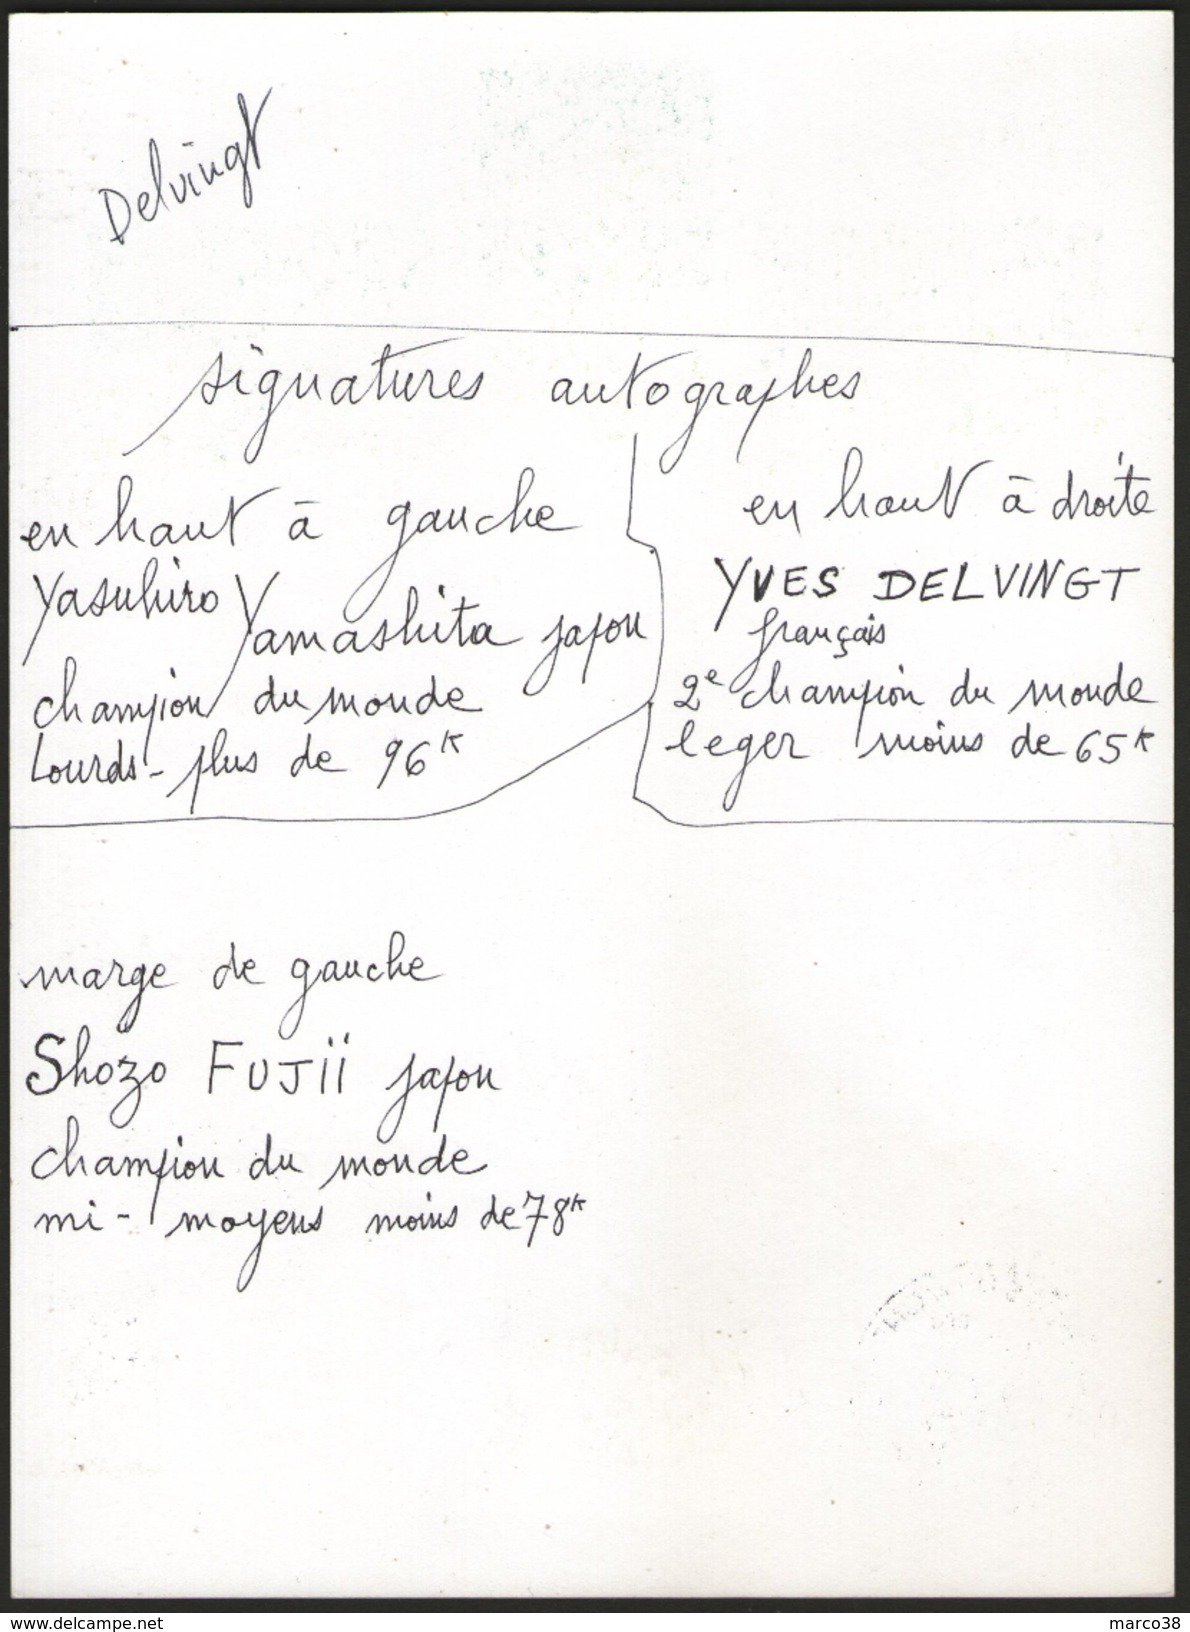 Delvingt
signatures autographes
en haut à gauche
Yasuhiro Yamashita japon
champion du monde
Lourds - plus de 96 K
en haut à droite
YVES DELVINGT
français
2e champion du monde
leger moins de 65 K
marge de gauche
Shozo FUJII japon
champion du monde
mi - moyens moins de 78 K
www.delcampe.net
marco38